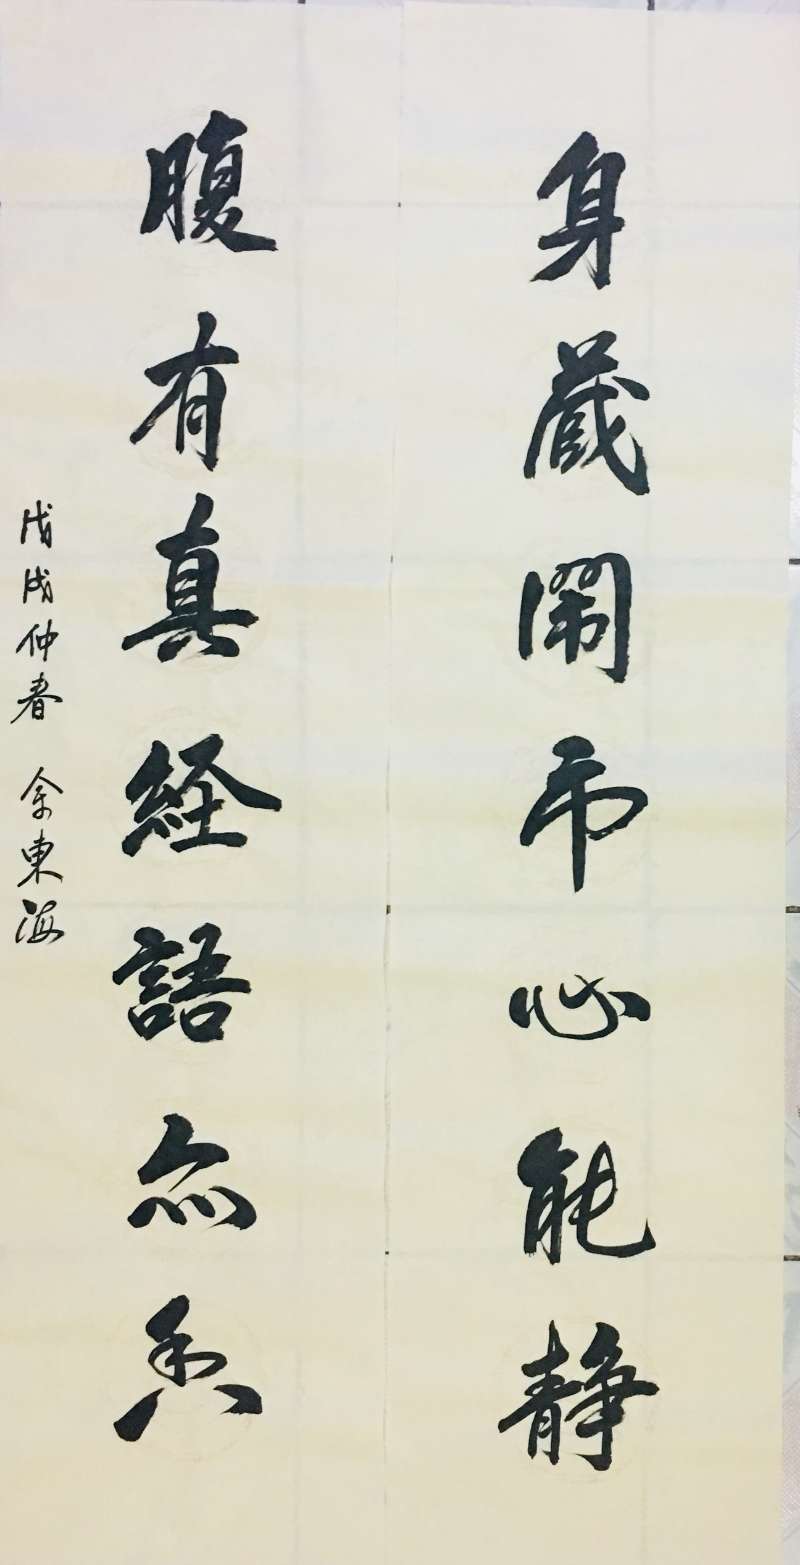 身藏鬧市心能静
腹有真経語亦香
戊戌仲春 余東海